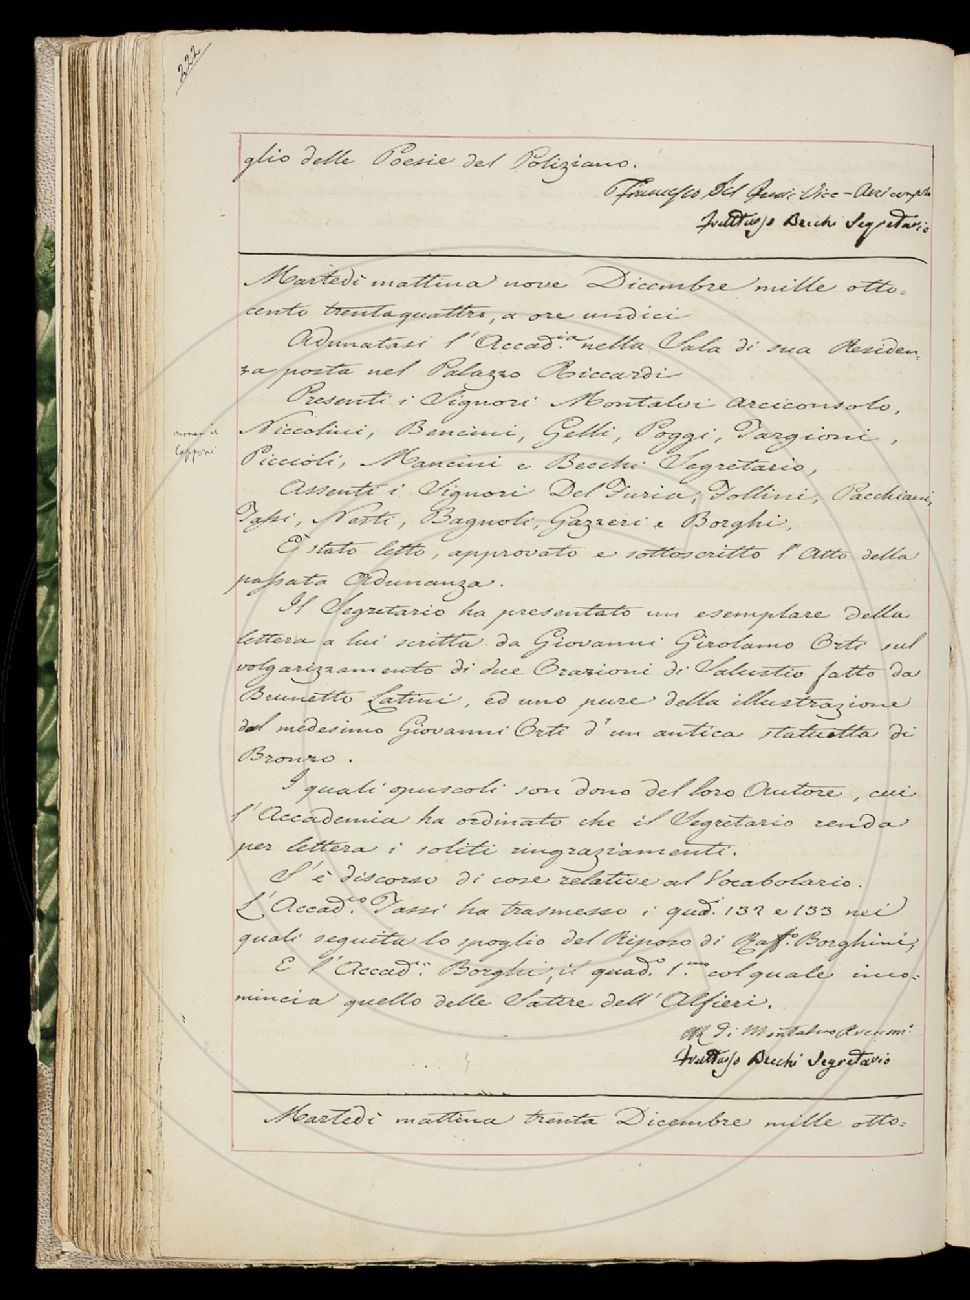 222
glio delle Poesie del Poliziano.
Francesco Del Furia Vice-Arciconsolo
Fruttuoso Becchi Segretario
Martedì mattina nove Dicembre mille otto=
cento trentaquattro, a ore undici
Adunatasi l'Accad.ia nella Sala di sua Residen=
za posta nel Palazzo Riccardi
Presenti i Signori Montalvi Arciconsolo,
Niccolini, Bencini, Gelli, Poggi, Targioni,
manca il
Capponi
Piccioli, Mancini e Becchi Segretario,
Assenti i Signori Del Furia, Follini, Pacchiani,
Tassi, Nesti, Bagnoli, Gazzeri e Borghi.
È stato letto, approvato e sottoscritto l'Atto della
passata Adunanza.
Il Segretario ha presentato un esemplare della
lettera a lui scritta da Giovanni Girolamo Orti sul
volgarizzamento di due Orazioni di Salustio fatto da
Brunetto Latini, ed uno pure della illustrazione
del medesimo Giovanni Orti d'un antica statuetta di
Bronzo.
I quali opuscoli son dono del loro Autore, cui
l'Accademia ha ordinato che il Segretario renda
per lettera i soliti ringraziamenti.
S'è discorso di cose relative al Vocabolario.
L'Accad.co Tassi ha trasmesso i quad.i 132 e 133 nei
quali seguita lo spoglio del Riposo di Raff.o Borghini;
E l'Accad.co Borghi, il quad.o 1.mo col quale inco=
mincia quello delle Satire dell'Alfieri.
di Montalvo Arcicons.
Fruttuoso Becchi Segretario
Martedì mattina trenta Dicembre mille otto=